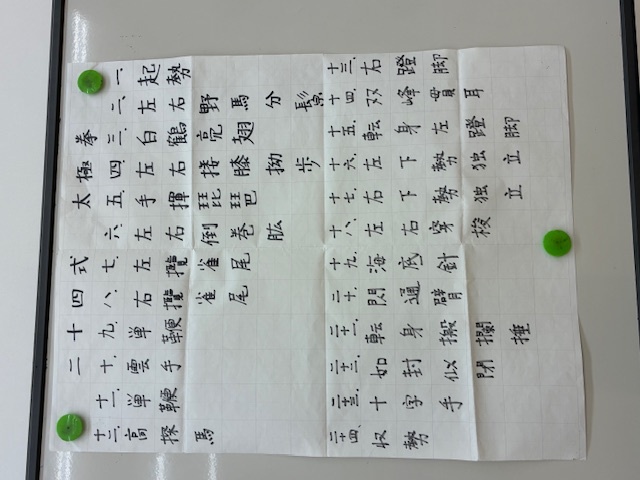 二十四式 太極拳
一.起勢
二.左右野馬分鬃
三.白鶴亮翅
四.左右搂膝拗歩
五.手揮琵琶
六.左右倒巻肱
七.左攬雀尾
八.右攬雀尾
九.単鞭
十.雲手
十一.単鞭
十二.高探馬
十三.右蹬脚
十四.双峰貫耳
十五.転身左蹬脚
十六.左下勢独立
十七.右下勢独立
十八.左右穿梭
十九.海底針
二十.閃通臂
二十一.転身搬攔捶
二十二.如封似閉
二十三.十字手
二十四.収勢